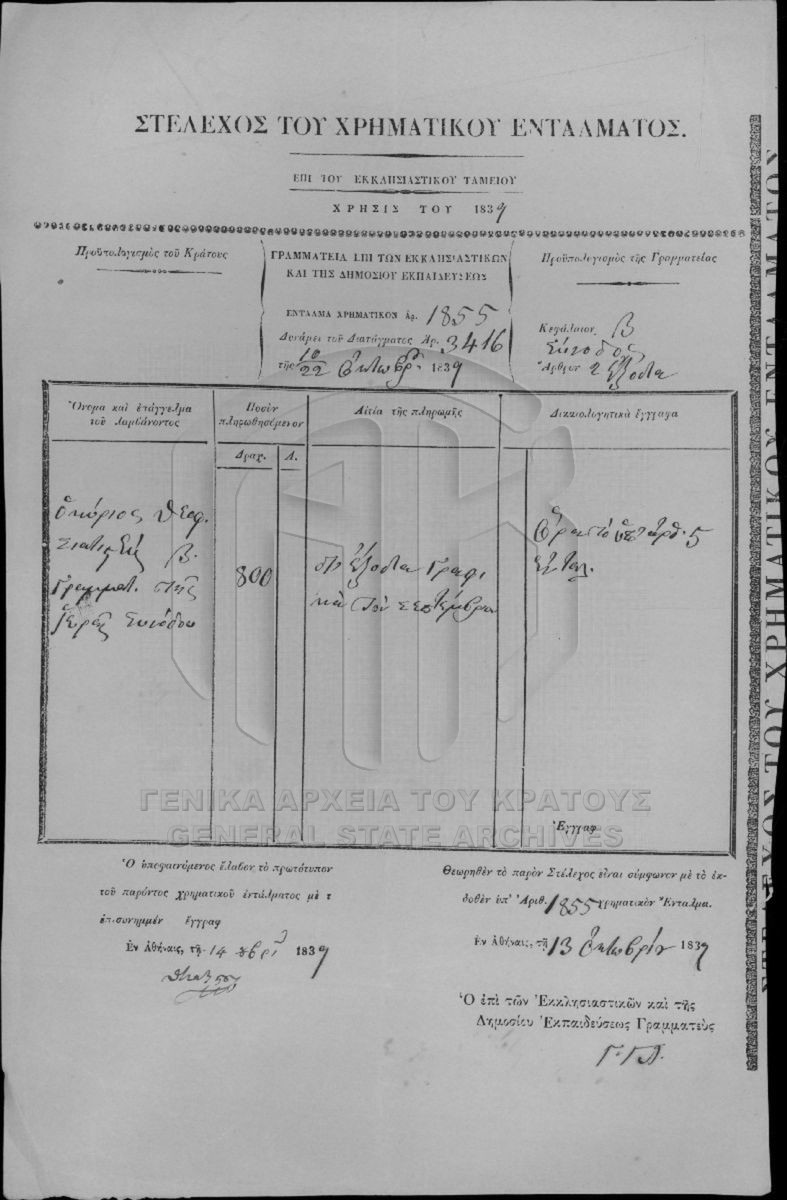 ΣΤΕΛΕΧΟΣ ΤΟΥ ΧΡΗΜΑΤΙΚΟΥ ΕΝΤΑΛΜΑΤΟΣ.
ΕΠΙ ΤΟΥ ΕΚΚΛΗΣΙΑΣΤΙΚΟΥ ΤΑΜΕΙΟΥ
ΧΡΗΣΙΣ ΤΟΥ 1839
Προϋπολογισμὸς τοῦ Κράτους
ΓΡΑΜΜΑΤΕΙΑ ΕΠΙ ΤΩΝ ΕΚΚΛΗΣΙΑΣΤΙΚΩΝ
ΚΑΙ ΤΗΣ ΔΗΜΟΣΙΟΥ ΕΚΠΑΙΔΕΥΣΕΩΣ
ΕΝΤΑΛΜΑ ΧΡΗΜΑΤΙΚΟΝ Ἀρ. 1855
Δυνάμει τοῦ Διατάγματος Ἀρ. 3416
τῆς 10/22 Ὀκτωβρ. 1839
Προϋπολογισμὸς τῆς Γραμματείας
Κεφάλαιον Β
Σύνοδος
Ἄρθρον 2 Ἔξοδα
Ὄνομα καὶ ἐπάγγελμα
τοῦ λαμβάνοντος
Ποσὸν
πληρωθησόμενον
Δραχ. Λ.
Αἰτία τῆς πληρωμῆς
Δικαιολογητικὰ ἔγγραφα
Ὁ κύριος Θεοφ.
Β.
Γραμματ. τῆς
Ἱερᾶς Συνόδου
800
Ἔξοδα Γραφι
κὰ τοῦ Σεπτεμβρίου
5
Ἐνταλ.
Ἔγγραφ
ΓΕΝΙΚΑ ΑΡΧΕΙΑ ΤΟΥ ΚΡΑΤΟΥΣ
GENERAL STATE ARCHIVES
Ὁ ὑποφαινόμενος ἔλαβον τὸ πρωτότυπον
τοῦ παρόντος χρηματικοῦ ἐντάλματος μὲ τ
ἐπισυνημμέν ἔγγραφ
Ἐν Ἀθήναις, τῇ 14 8βρίου 1839
Θεωρηθὲν τὸ παρὸν Στέλεχος εἶναι σύμφωνον μὲ τὸ ἐκ-
δοθὲν ὑπ' Ἀριθ. 1855 χρηματικὸν Ἔνταλμα.
Ἐν Ἀθήναις, τῇ 13 Ὀκτωβρίου 1839
Ὁ ἐπὶ τῶν Ἐκκλησιαστικῶν καὶ τῆς
Δημοσίου Ἐκπαιδεύσεως Γραμματεὺς
ΣΤΕΛΕΧΟΣ ΤΟΥ ΧΡΗΜΑΤΙΚΟΥ ΕΝΤΑΛΜΑΤΟΣ